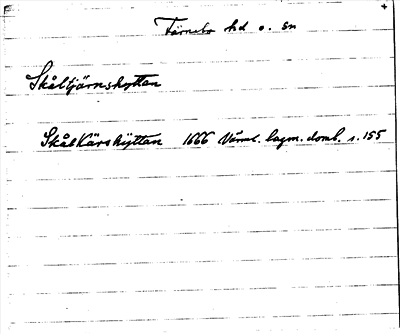 Färnebo hd o. sn
Skåltjärnshyttan
Skålkärshÿttan 1666 Värml. lagm. domb. s. 155